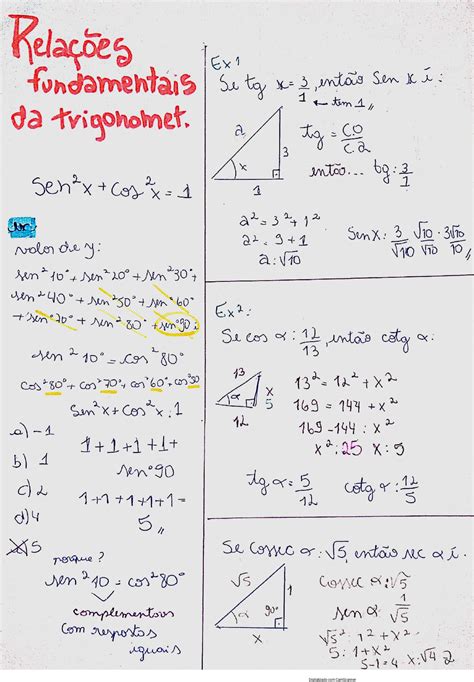 Relações
fundamentais
da trigonomet.
sen²x + cos²x = 1
valor de y:
sen²10° + sen²20° + sen²30° +
sen²40° + sen²50° + sen²60°
+ sen²70° + sen²80° + sen²90:
sen²10° = cos²80°
cos²80° + cos²70° + cos²60° + cos²50
Sen²x + Cos²x : 1
a) -1
b) 1
c) 2
d) 4
e) 5
1+1+1+1+
sen²90
1+1+1+1+1=
5,,
porque?
sen²10 = cos²80°
complementares
com respostas
iguais
Ex1
Se tg x = 3/1, então sen x é:
← tem 1,,
a
3
x
1
tg = C.O/C.A
então... tg: 3/1
a² = 3² + 1²
a² = 9 + 1
a: √10
Sen x: 3/√10 √10/√10 : 3√10/10
Ex2:
Se cos α: 12/13, então cotg α:
13
x
5
α
12
13² = 12² + x²
169 = 144 + x²
169 - 144 : x²
x²: 25 x: 5
tg α = 5/12 cotg α: 12/5
Se cossec α: √5, então sec α é:
√5
1
α
90°
x
cossec α: √5
sen α: 1/√5
√5² : 1² + x²
5: 1 + x²
5-1=4 x: √4 2
Digitalizado com CamScanner